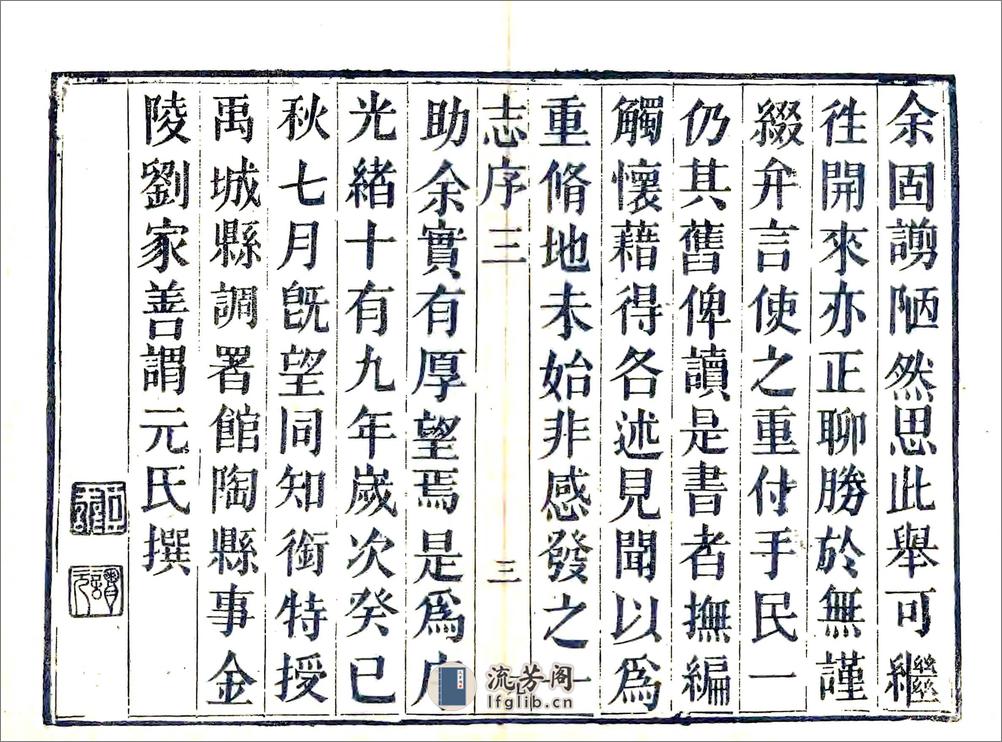 余固謭陋然思此舉可繼
徃開來亦正聊勝於無謹
綴弁言使之重付手民一
仍其舊俾讀是書者撫編
觸懷藉得各述見聞以爲
重脩地未始非感發之一
志序三 三
助余實有厚望焉是爲序
光緒十有九年歲次癸巳
秋七月旣望同知銜特授
禹城縣調署館陶縣事金
陵劉家善謂元氏撰
流芳阁
lfglib.cn